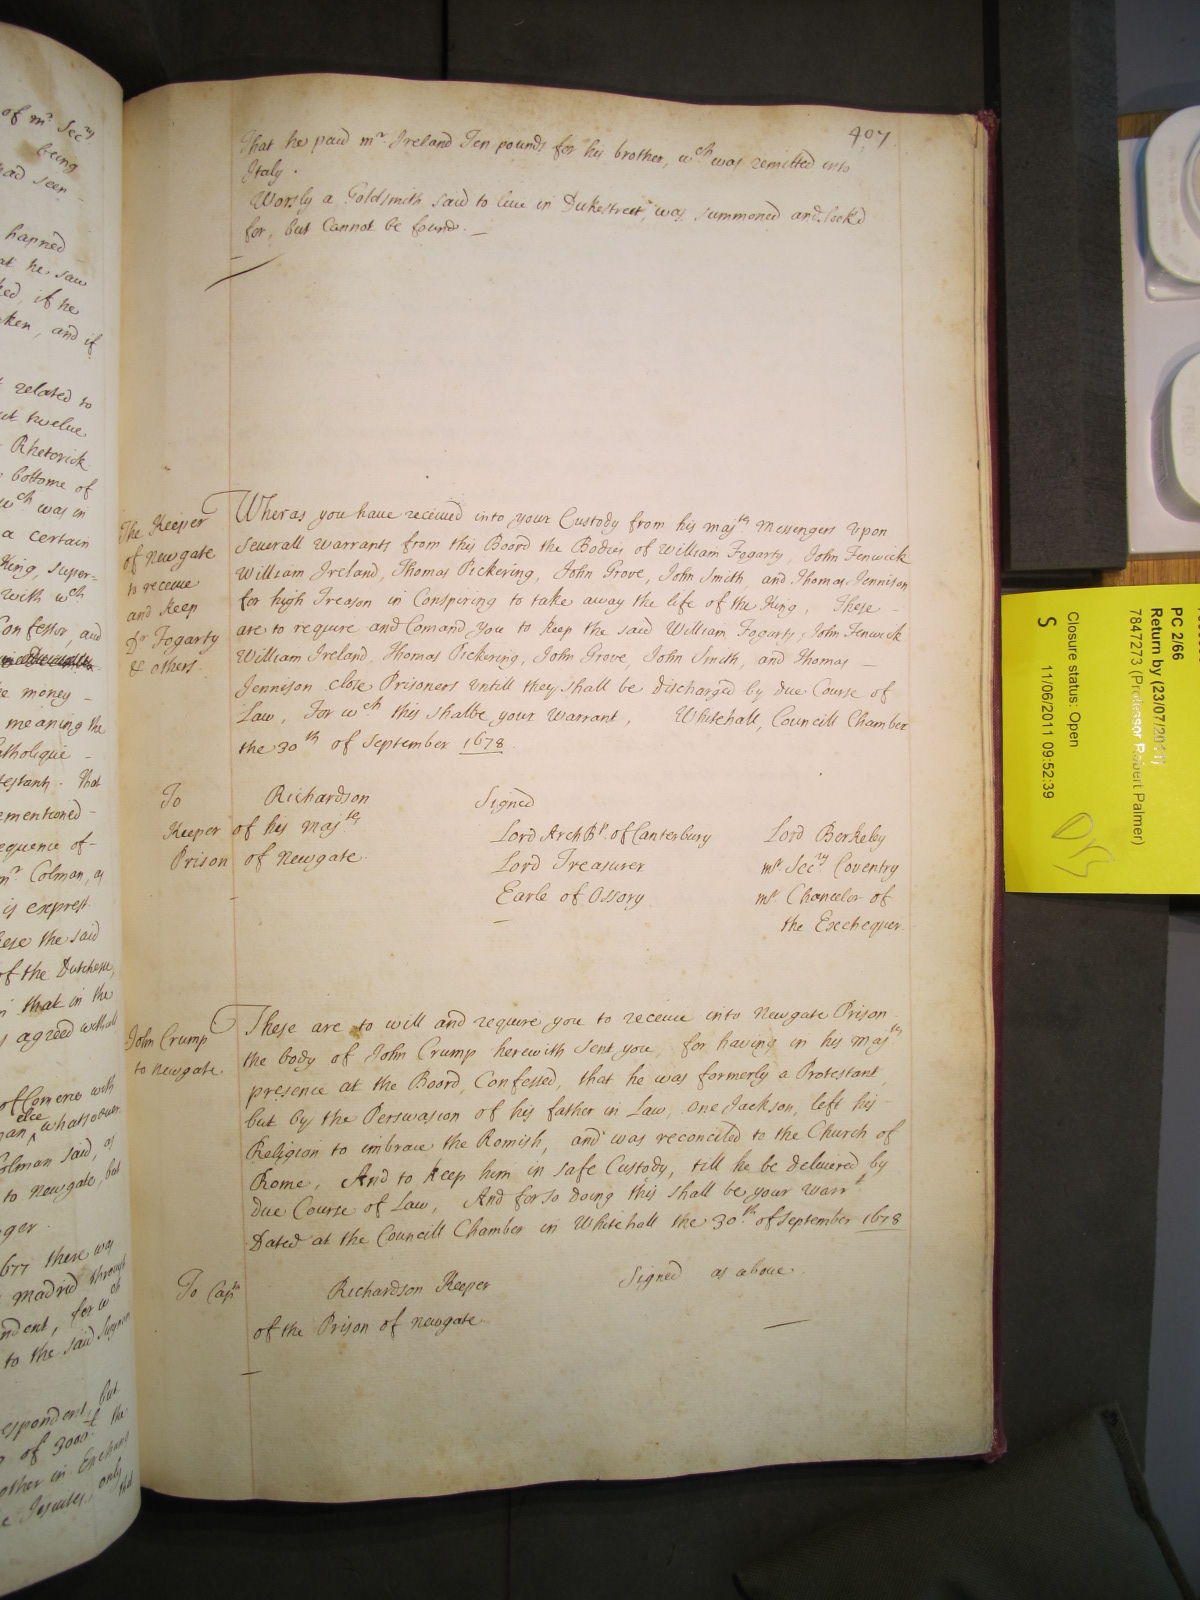 of mr Secry
being
had seen
hapned
at he saw
ked, if he
ken, and if
related to
ut twelve
Rhetorick
bottome of
wch was in
a certain
King, super=
with wch
Confessor, and
he money -
meaning the
atholique -
testant. That
ementioned -
equence of -
mr Colman, as
is exprest
these the said
of the Dutchesse,
that in the
agreed withall
else
man ^ whatsoever
Colman said, as
to Newgate, but
ger.
1677 there was
madrid through
ndent, for wch
to the said
espondent, but
of 3000l the
other in
Jesuites only
407
That he paid mr Ireland Ten pounds for his brother, wch was remitted into
Italy.
Worsly a Goldsmith said to live in Dukestreet, was summoned and look'd
for, but Cannot be found. -
The Keeper
of Newgate
to receive
and keep
Dr Fogarty
& others.
Wheras you have received into your Custody from his majtys Messengers upon
severall warrants from this Board the Bodies of William Fogarty, John Fenwick
William Ireland, Thomas Pickering, John Grove, John Smith, and Thomas Jennison
for high Treason in Conspiring to take away the life of the King, These -
are to require and Comand you to keep the said William Fogarty, John Fenwick
William Ireland, Thomas Pickering, John Grove, John Smith, and Thomas -
Jennison close Prisoners untill they shall be discharged by due Course of
Law, For wch this shalbe your warrant, Whitehall, Councill Chamber
the 30th of September 1678
To Richardson
Keeper of his majtes
Prison of Newgate.
Signed
Lord ArchBp. of Canterbury
Lord Treasurer
Earle of Ossory
Lord Berkeley
mr. Secry Coventry
mr. Chancelor of
the Exchequer.
John Crump
to Newgate.
These are to will and require you to receive into Newgate Prison
the body of John Crump herewith sent you, for having in his majtys
presence at the Board, Confessed, that he was formerly a Protestant,
but by the Perswasion of his father in Law, one Jackson, left his -
Religion to imbrace the Romish, and was reconciled to the Church of
Rome, And to keep him in safe Custody, till he be delivered by
due Course of Law, And for so doing this shall be your warrt
Dated at the Councill Chamber in Whitehall the 30th of September 1678
To Captn Richardson Keeper
of the Prison of Newgate.
Signed as above.
PC 2/66
Return by (23/07/2011)
7847273 (Professor Robert Palmer)
Closure status: Open
S 11/06/2011 09:52:39
DB